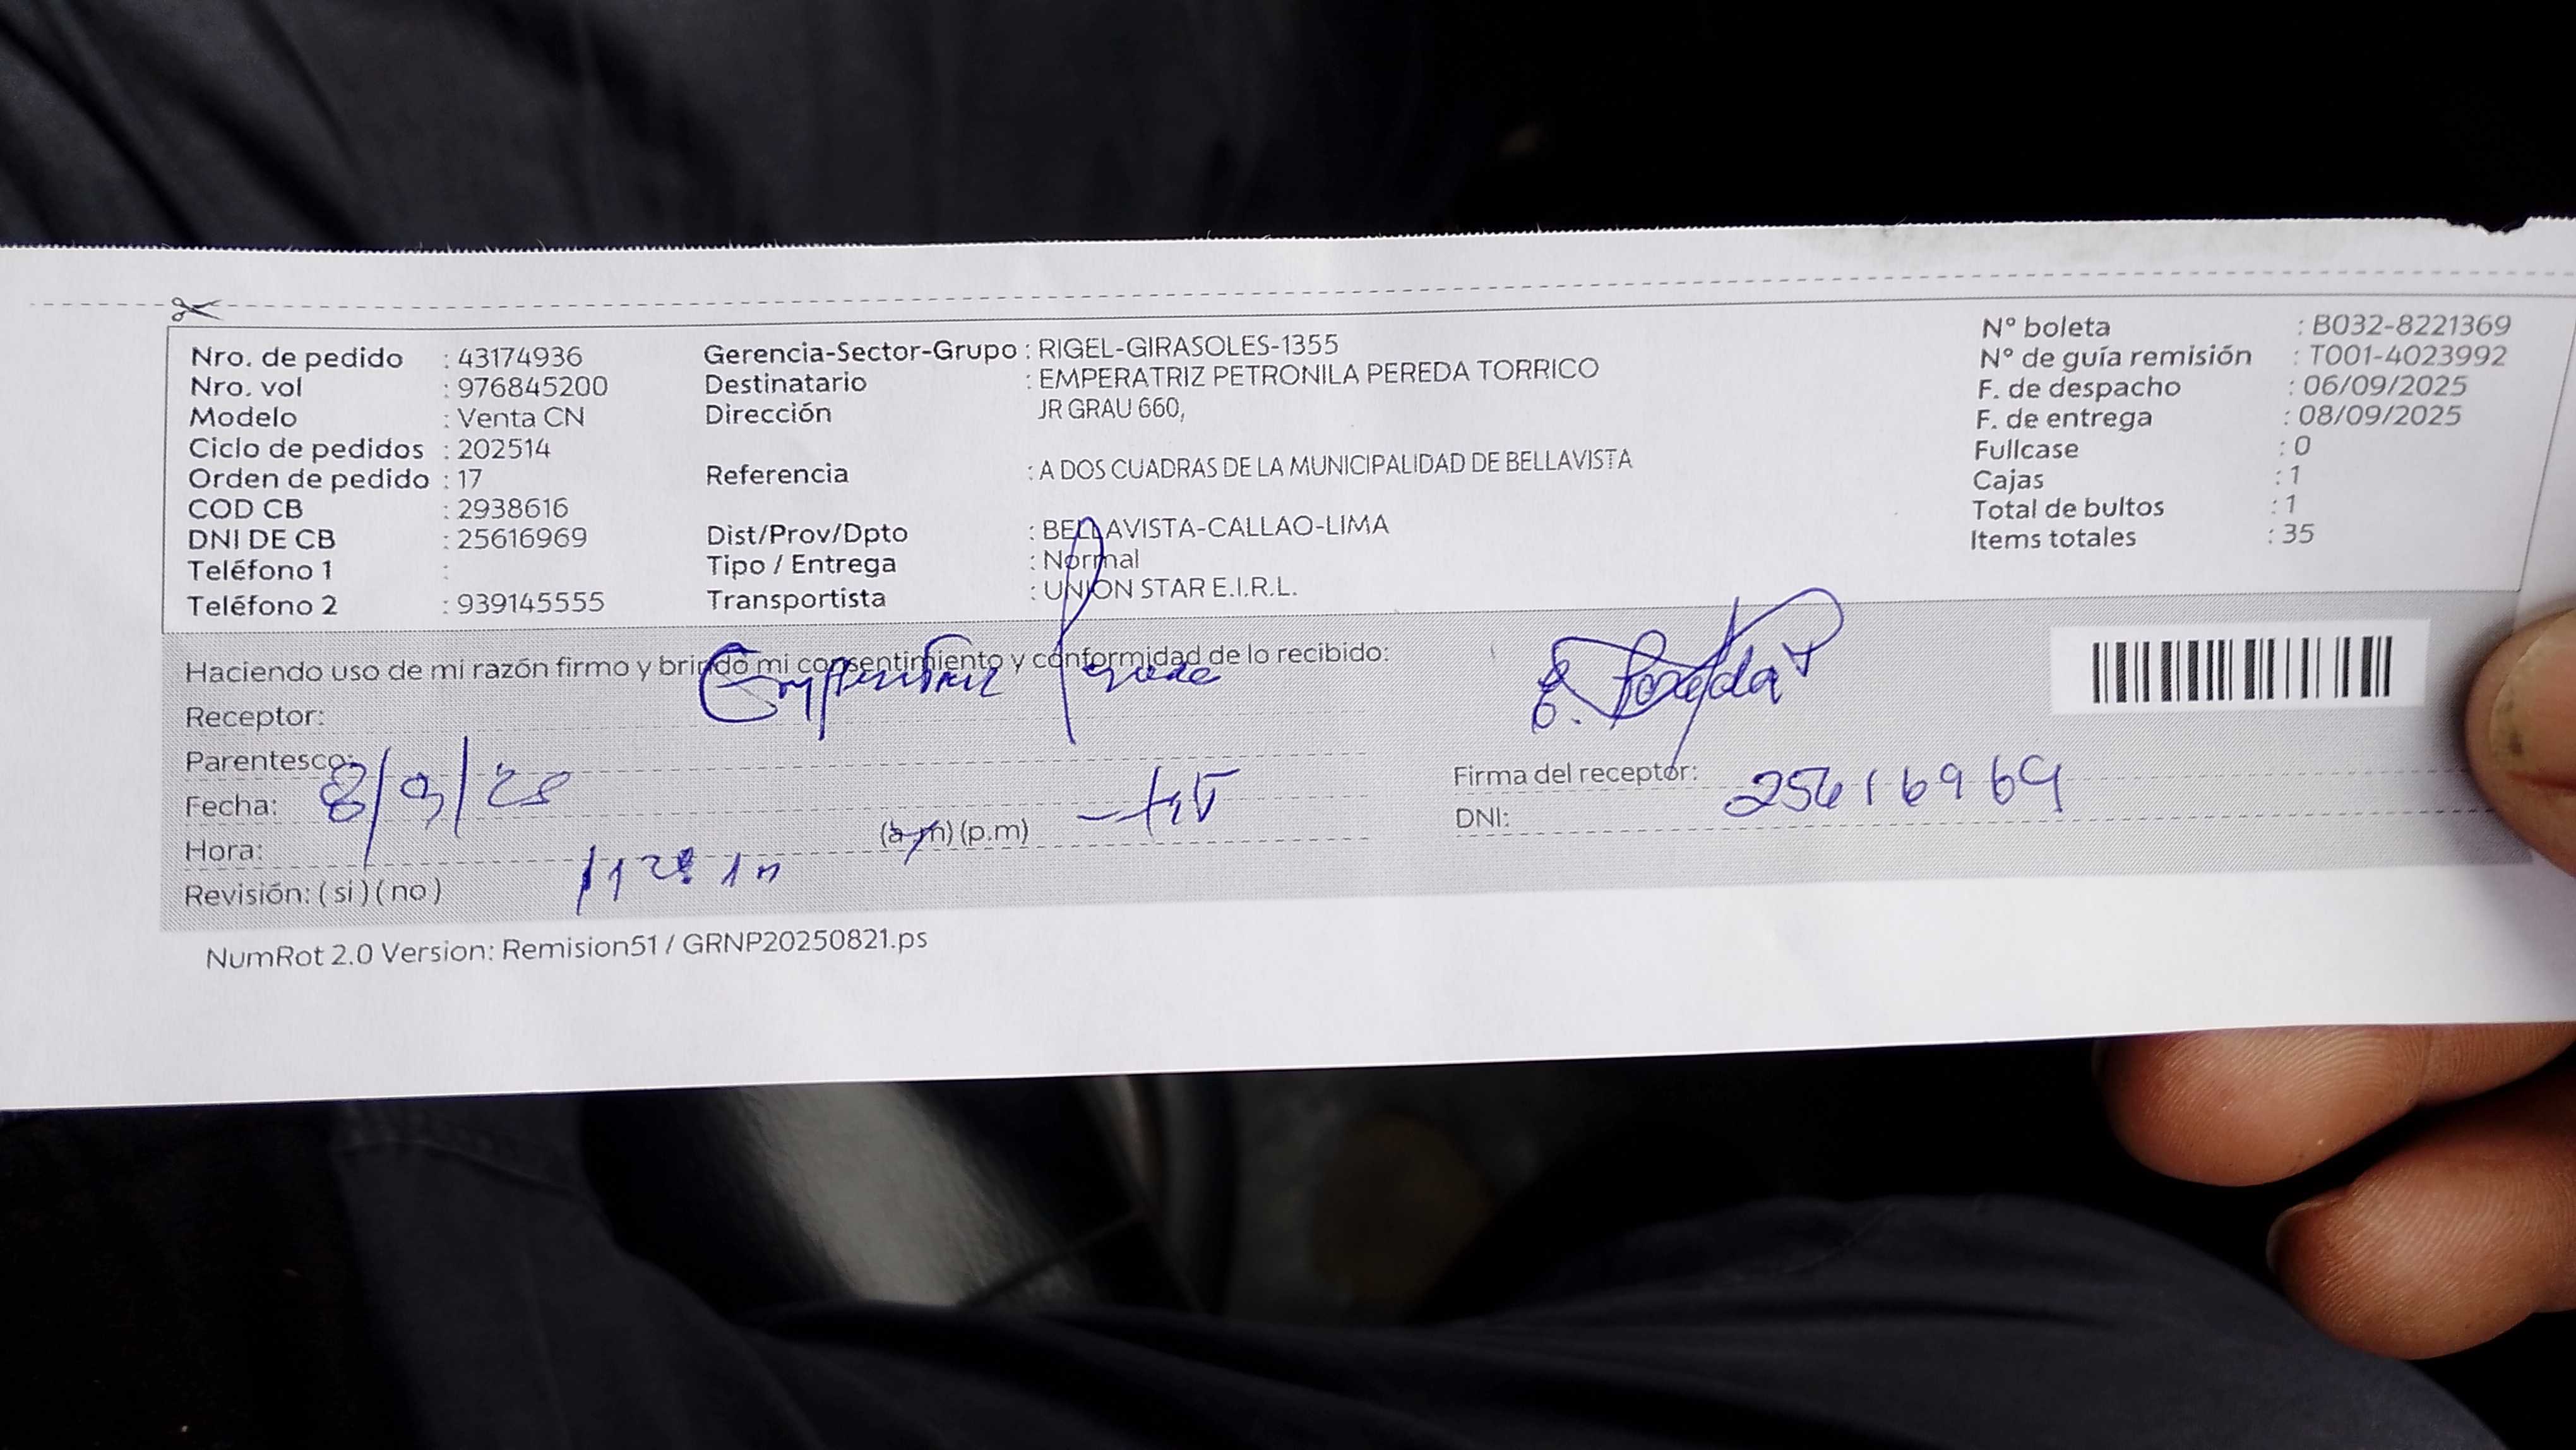 Nro. de pedido : 43174936
Nro. vol : 976845200
Modelo : Venta CN
Ciclo de pedidos : 202514
Orden de pedido : 17
COD CB : 2938616
DNI DE CB : 25616969
Teléfono 1 :
Teléfono 2 : 939145555
Gerencia-Sector-Grupo : RIGEL-GIRASOLES-1355
Destinatario : EMPERATRIZ PETRONILA PEREDA TORRICO
Dirección JR GRAU 660,
Referencia : A DOS CUADRAS DE LA MUNICIPALIDAD DE BELLAVISTA
Dist/Prov/Dpto : BELLAVISTA-CALLAO-LIMA
Tipo / Entrega : Normal
Transportista : UNION STAR E.I.R.L.
N° boleta : B032-8221369
N° de guía remisión : T001-4023992
F. de despacho : 06/09/2025
F. de entrega : 08/09/2025
Fullcase : 0
Cajas : 1
Total de bultos : 1
Items totales : 35
Haciendo uso de mi razón firmo y brindo mi consentimiento y conformidad de lo recibido:
Receptor:
Parentesco:
Fecha: 8/9/25
Hora: (a.m) (p.m)
Revisión: ( si ) ( no )
E. Pereda T
Firma del receptor:
DNI: 25616969
NumRot 2.0 Version: Remision51 / GRNP20250821.ps